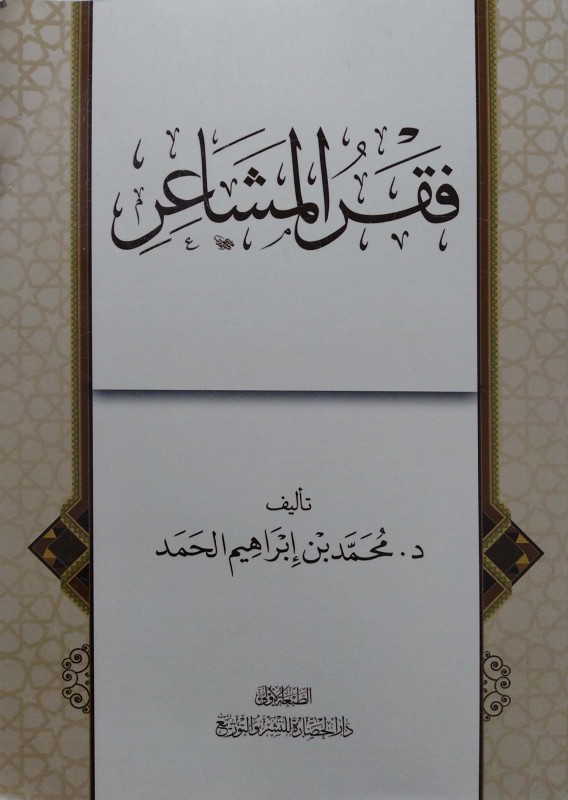 فَقْرُ المَشَاعِرِ
تأليف
د. مُحَمَّد بْن إِبْرَاهِيم الحَمَد
الطبعة الأولى
دار الحضارة للنشر والتوزيع